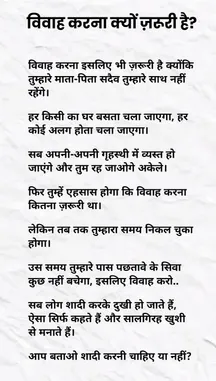 विवाह करना क्यों ज़रूरी है?
विवाह करना इसलिए भी ज़रूरी है क्योंकि
तुम्हारे माता-पिता सदैव तुम्हारे साथ नहीं
रहेंगे।
हर किसी का घर बसता चला जाएगा, हर
कोई अलग होता चला जाएगा।
सब अपनी-अपनी गृहस्थी में व्यस्त हो
जाएंगे और तुम रह जाओगे अकेले।
फिर तुम्हें एहसास होगा कि विवाह करना
कितना ज़रूरी था।
लेकिन तब तक तुम्हारा समय निकल चुका
होगा।
उस समय तुम्हारे पास पछतावे के सिवा
कुछ नहीं बचेगा, इसलिए विवाह करो..
सब लोग शादी करके दुखी हो जाते हैं,
ऐसा सिर्फ कहते हैं और सालगिरह खुशी
से मनाते हैं।
आप बताओ शादी करनी चाहिए या नहीं?